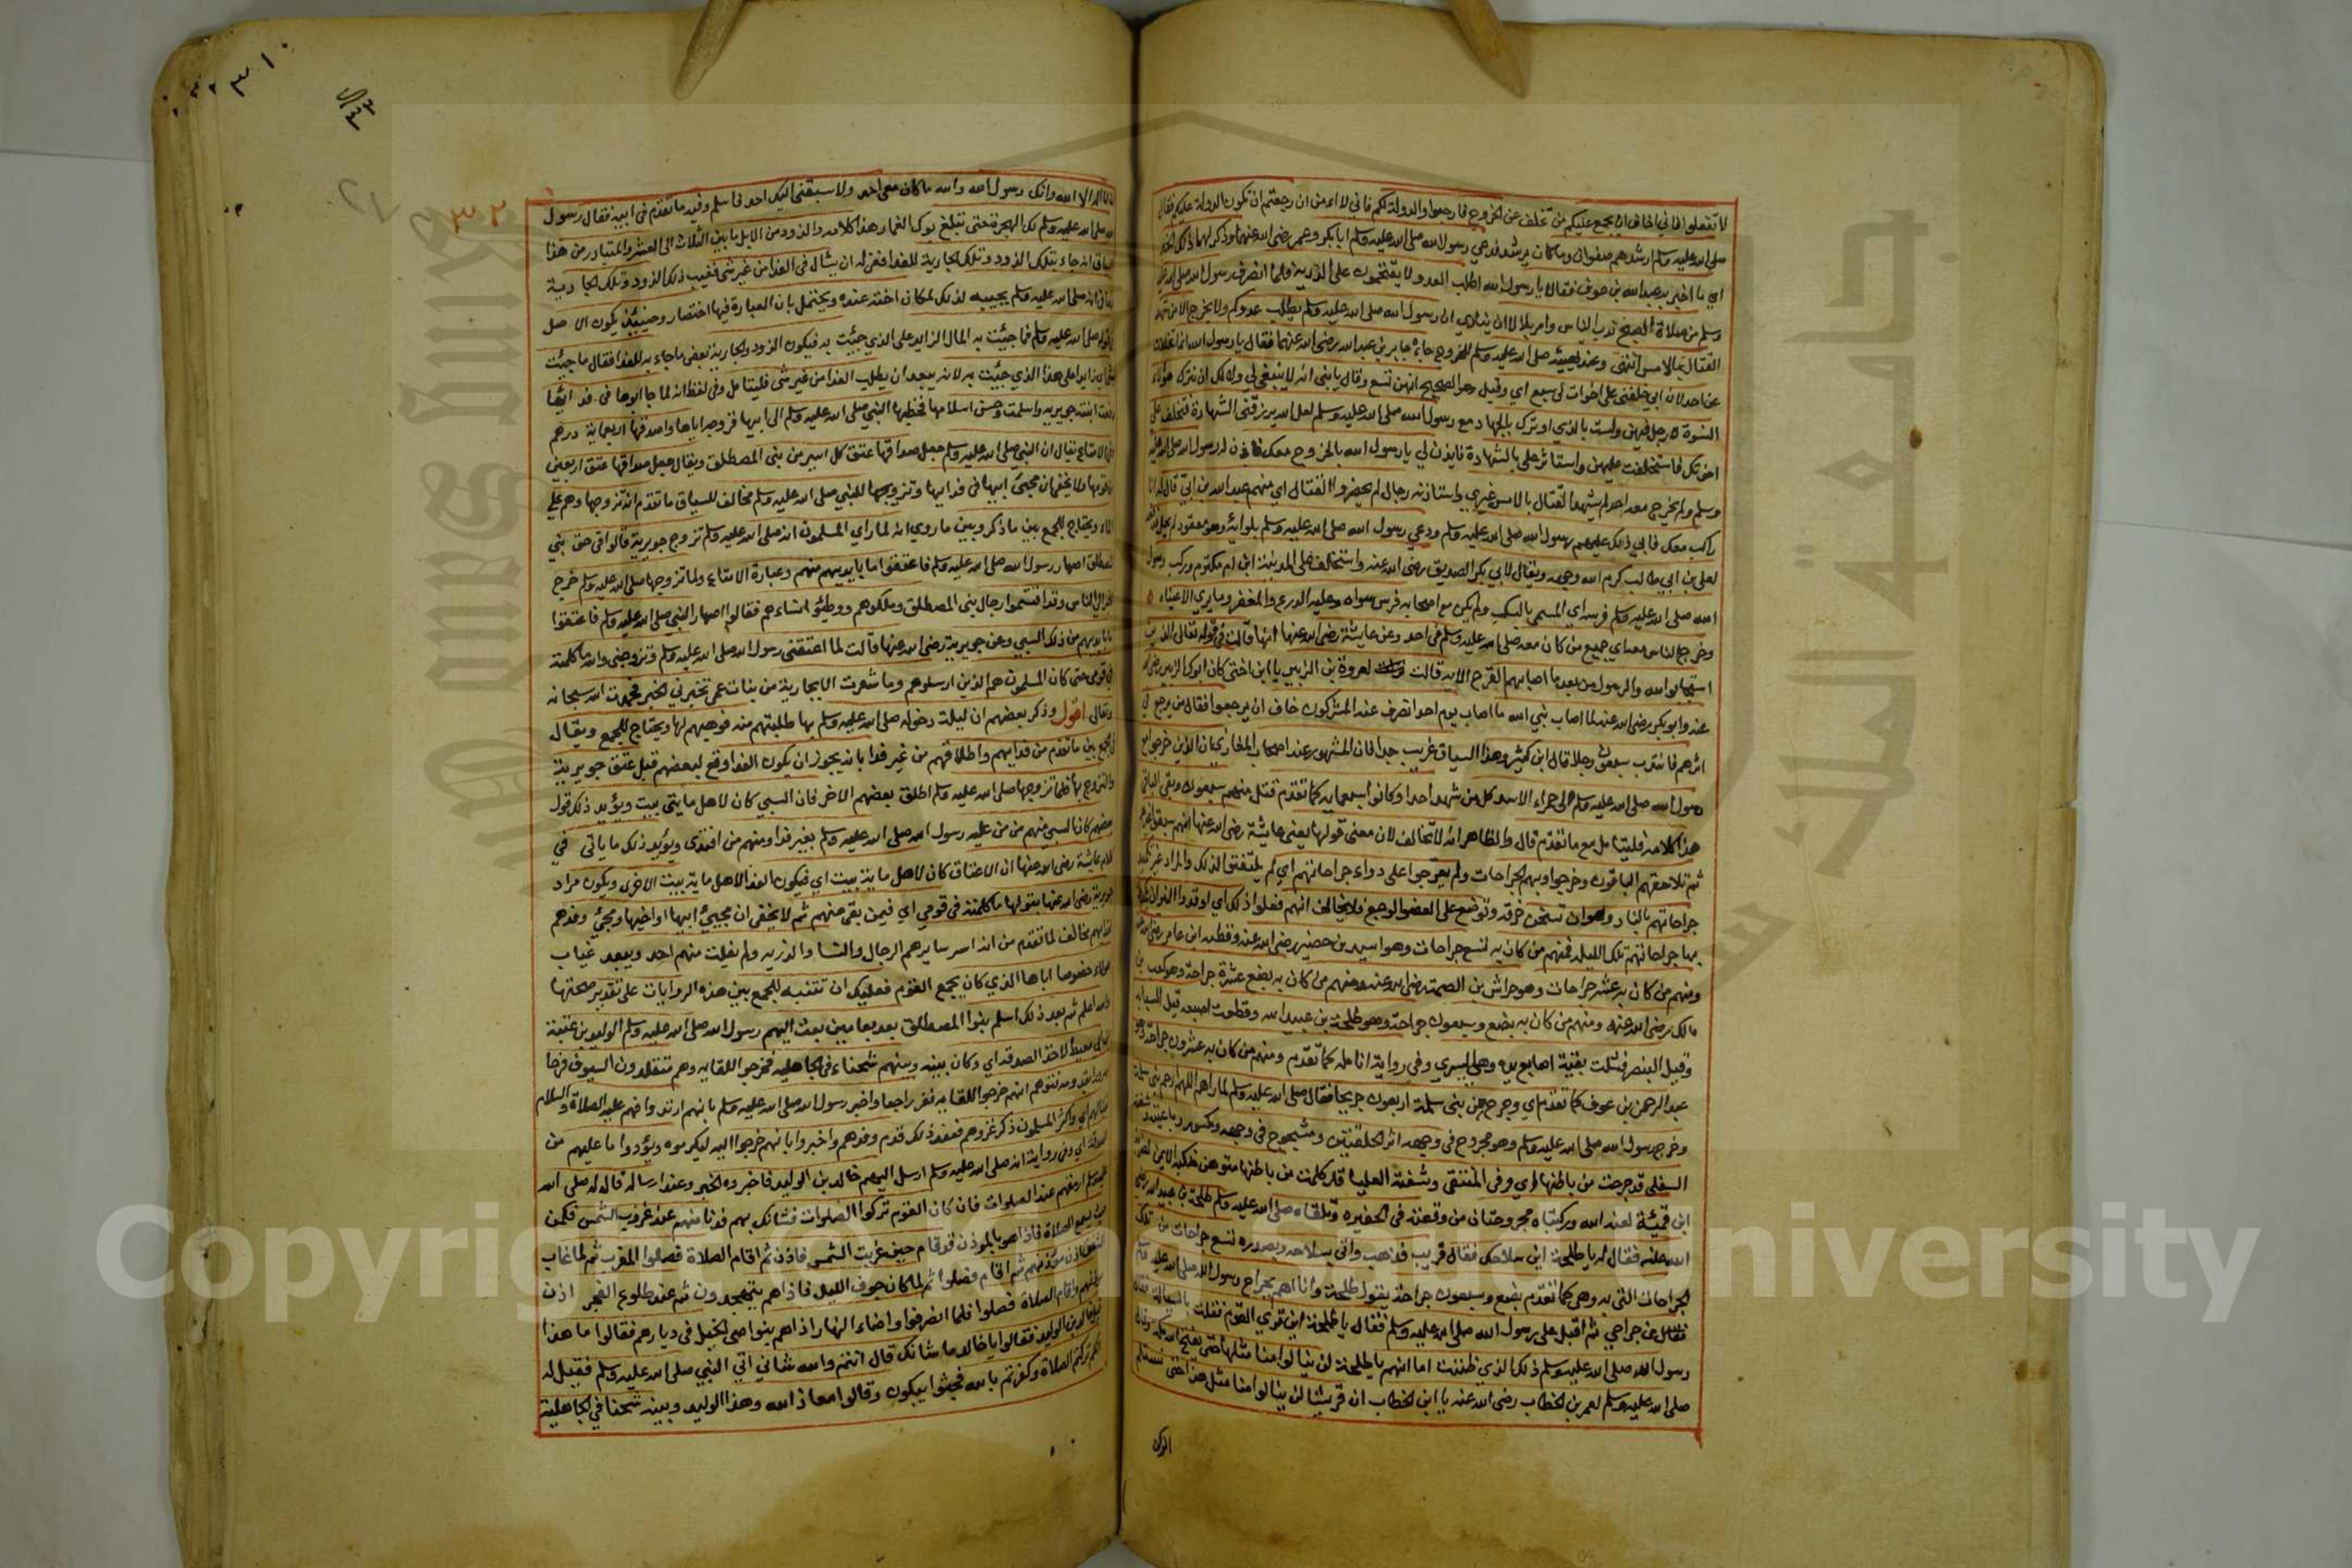 لا تفعلوا فاني اخاف ان يجمع عليكم من تخلف عن الخروج فارجعوا والدولة لكم فاني لا امن ان رجعتم ان تكون الدولة عليكم فقال
صلى الله عليه وسلم ارشدهم صفوان وما كان برشيد فدعى رسول الله صلى الله عليه وسلم ابا بكر وعمر رضى الله عنهما وذكر لهما ذلك
اي ما اخبر به عبد الله بن عوف فقالا يا رسول الله اطلب العدو ولا يقتحمون على الذرية فلما انصرف رسول الله صلى الله عليه
وسلم من صلاة الصبح ندب الناس وامر بلالا ان ينادي ان رسول الله صلى الله عليه وسلم يطلب عدوكم ولا يخرج الا من شهد
القتال بالامس انتهى وعند تهيئته صلى الله عليه وسلم للخروج جاءه جابر بن عبد الله رضى الله عنهما فقال يا رسول الله انما تخلفت
عن احد لان ابي خلفنى على اخوات لى سبع اي وقيل وهو الصحيح انهن تسع وقال يا بنى انه لا ينبغى لي ولا لك ان نترك هؤلاء
النسوة لا رجل فيهن ولست بالذي اوثرك بالجهاد مع رسول الله صلى الله عليه وسلم لعل الله يرزقنى الشهادة فتخلف على
اخوتك فاستخلفت عليهن واستاثر على بالشهادة فايذن لي يا رسول الله بالخروج معك فاذن له رسول الله صلى الله عليه
وسلم ولم يخرج معه احد لم يشهد القتال بالامس غيري واستاذنه رجال لم يحضروا القتال اي منهم عبد الله بن ابي قال له انا
راكب معك فابي ذلك عليهم رسول الله صلى الله عليه وسلم ودعي رسول الله صلى الله عليه وسلم بلوائه وهو معقود لم يحل فدفعه
لعلى بن ابي طالب كرم الله وجهه ويقال لابي بكر الصديق رضى الله عنه واستخلف على المدينة ابن ام مكتوم وركب رسول
الله صلى الله عليه وسلم فرسه اي المسمى بالسكب ولم يكن مع اصحابه فرس سواه وعليه الدرع والمغفر وما يري الا عيناه
وخرج الناس معه اي جميع من كان معه صلى الله عليه وسلم فى احد وعن عايشة رضى الله عنها انها قالت فى قوله تعالى الذين
استجابوا لله والرسول من بعد ما اصابهم القرح الاية قالت لعروة بن الزبير يا ابن اختى كان ابوك الزبير رضى الله
عنه وابو بكر رضى الله عنه لما اصاب نبي الله ما اصاب يوم احد انصرف عنه المشركون خاف ان يرجعوا فقال من يرجع في
اثرهم فانتدب سبعون رجلا قال ابن كثير وهذا السياق غريب جدا فان المشهور عند اصحاب المغازي ان الذين خرجوا مع
رسول الله صلى الله عليه وسلم الى حمراء الاسد كل من شهد احدا وكانوا سبعماية كما تقدم قتل منهم سبعون وبقى الباقي
هذا كلامه فليتامل مع ما تقدم قال والظاهر انه لا تخالف لان معنى قولها يعنى عايشة رضى الله عنها انهم سبقوا غيرهم
ثم تلاحقهم الباقون وخرجوا وبهم الجراحات ولم يعرجوا على دواء جراحاتهم اي لم يلتفتوا لذلك والمراد غير تكميد
جراحاتهم بالنار وهو ان تسخن خرقه وتوضع على العضو الوجع فلا يخالف انهم فعلوا ذلك اي اوقدوا النيران
بها جراحاتهم تلك الليلة فمنهم من كان به تسع جراحات وهو اسيد بن حضير رضى الله عنه وقطبه ابن عامر رضى الله عنه
ومنهم من كان به عشر جراحات وهو خراش بن الصمت رضى الله عنه ومنهم من كان به بضع عشرة جراحة وهو كعب بن
مالك رضى الله عنه ومنهم من كان به بضع وسبعون جراحة وهو طلحة بن عبيد الله وقطعت اصبعه قيل السبابه
وقيل البنصر فشلت بقية اصابع يده وهى اليسري وفى رواية انامله كما تقدم ومنهم من كان به عشرون جراحة وهو
عبد الرحمن بن عوف كما تقدم اي وجرح من بنى سلمة اربعون جريحا فقال صلى الله عليه وسلم لما راهم اللهم ارحم بنى سلمة
وخرج رسول الله صلى الله عليه وسلم وهو مجروح فى وجهه اثر الحلقتين ومشجوج فى وجهه ومكسور رباعيته وشفته
السفلى قد جرحت من باطنها اي وفى المنتقى وشفته العليا قد كلمت من باطنها متوهن منكبه الايمن لضربة
ابن قميئة لعنه الله وركبتاه مجروحتان من وقعته فى الحفيره وتلقاه صلى الله عليه وسلم طلحة بن عبيد الله رضى
الله عنه فقال له يا طلحة اين سلاحك فقال قريب فذهب واتى بسلاحه وبصدره تسع جراحات من تلك
الجراحات التى به وهى كما تقدم بضع وسبعون جراحة يقول طلحة وانا اهم بجراح رسول الله صلى الله عليه وسلم
من جراحي ثم اقبل على رسول الله صلى الله عليه وسلم فقال يا طلحة اين تري القوم فقلت بالسيالة فقال
رسول الله صلى الله عليه وسلم ذلك الذي ظننت اما انهم يا طلحة لن ينالوا منا مثلها حتى يفتح الله مكة وقال
صلى الله عليه وسلم لعمر بن الخطاب رضى الله عنه يا ابن الخطاب ان قريشا لن ينالوا منا مثل هذا حتى نستلم
الركن
٣٢
لا اله الا الله وانك رسول الله والله ما كان معى احد ولا سبقنى اليك احد فاسلم وفيه ما تقدم فى ابيه فقال رسول
الله صلى الله عليه وسلم لك الهجرة حتى تبلغ برك الغماد هذا كلامه والذود من الابل ما بين الثلاث الى العشر والمتبادر من هذا
السياق انه جاء بتلك الذود وتلك الجارية للفدا ففر له ان يسال فى الفدا من غير شى فغيب ذلك الذود وتلك الجارية
صلى الله عليه وسلم يجيبه لذلك لمكان اخته عنده ويحتمل بان العبارة فيها اختصار وحينئذ يكون الاصل
قوله صلى الله عليه وسلم فما جئت به المال الزايد على الذي جئت به فيكون الذود والجارية بعض ما جاء به للفدا فقال ما جئت
بشى زايدا على هذا الذي جئت به لانه يبعد ان يطلب الفدا من غير شى فليتامل وفى لفظ انه لما جا ابوها فى فدائها
دفعت ابنته جويريه واسلمت وحسن اسلامها فخطبها النبي صلى الله عليه وسلم الى ابيها فزوجه اياها واصدقها اربعماية درهم
الامتاع يقال ان النبى صلى الله عليه وسلم جعل صداقها عتق كل اسير من بنى المصطلق ويقال جعل صداقها عتق اربعين
من قومها ولا يخفى ان مجيئ ابيها فى فدايها وتزويجها للنبي صلى الله عليه وسلم مخالف للسياق ما تقدم انه تزوجها وهم على
الماء ويحتاج للجمع بين ما ذكر وبين ما روي انه لما راي المسلمون انه صلى الله عليه وسلم تزوج جويرية قالوا فى حق بنى
المصطلق اصهار رسول الله صلى الله عليه وسلم فاعتقوا ما بايديهم منهم وعبارة الامتاع ولما تزوجها صلى الله عليه وسلم خرج
الخبر الى الناس وقد اقتسموا رجال بنى المصطلق وملكوهم ووطئوا نساءهم فقالوا اصهار النبي صلى الله عليه وسلم فاعتقوا
ما بايديهم من ذلك السبي وعن جويرية رضى الله عنها قالت لما اعتقنى رسول الله صلى الله عليه وسلم وتزوجنى والله ما كلمته
في قومى حتى كان المسلمون هم الذين ارسلوهم وما شعرت الا بجارية من بنات عمى تخبرني الخبر فحمدت الله سبحانه
وتعالى اقول وذكر بعضهم ان ليلة دخوله صلى الله عليه وسلم بها طلبتهم منه فوهبهم لها ويحتاج للجمع ويقال
فى الجمع بين ما تقدم من فدايهم واطلاقهم من غير فدا بانه يجوز ان يكون الفدا وقع لبعضهم قبل عتق جويرية
والتزوج بها فلما تزوجها صلى الله عليه وسلم اطلق بعضهم الاخر فان السبي كان لاهل مايتى بيت ويؤيد ذلك قول
بعضهم كان السبي منهم من من عليه رسول الله صلى الله عليه وسلم بغير فدا ومنهم من افتدى ويؤيد ذلك ما ياتى في
كلام عايشة رضى الله عنها ان الاعتاق كان لاهل ماية بيت اي فيكون الفدا لاهل ماية بيت الاخرى ويكون مراد
جويرية رضى الله عنها بقولها ما كلمته فى قومي اي فيمن بقى منهم ثم لا يخفى ان مجيئ ابيها او اخيها ومجيئ وفدهم
لفدايهم مخالف لما تقدم من انه اسر سايرهم الرجال والنسا والذرية ولم يفلت منهم احد ويبعد غياب
هولاء خصوصا اباها الذي كان يجمع القوم فعليك ان تتنبه للجمع بين هذه الروايات على تقدير صحتها
والله اعلم ثم بعد ذلك اسلم بنوا المصطلق بعد بعامين بعث اليهم رسول الله صلى الله عليه وسلم الوليد بن عقبة
بن ابي معيط لاخذ الصدقه اي وكان بينه وبينهم شحناء فى الجاهلية فخرجوا للقايه وهم متقلدون السيوف فرحا
انهم خرجوا للقايه ففر راجعا واخبر رسول الله صلى الله عليه وسلم بانهم ارتدوا فهم عليه الصلاة والسلام
بقتالهم اي واكثر المسلمون ذكر غزوهم فعند ذلك قدم وفدهم واخبروا بانهم خرجوا اليه ليكرموه ويؤدوا ما عليهم من
الصدقة اي وفى رواية انه صلى الله عليه وسلم ارسل اليهم خالد بن الوليد فاخبروه الخبر وعند ارساله قال له صلى الله
عليه وسلم ارمقهم عند الصلوات فان كان القوم تركوا الصلوات فشانك بهم فدنا منهم عند غروب الشمس فكمن
حيث يسمع الصلاة فاذا هو بالموذن قد قام حين غربت الشمس فاذن ثم اقام الصلاة فصلوا المغرب ثم لما غاب
الشفق اذن موذنهم ثم اقام فصلوا ثم لما كان جوف الليل فاذا هم يتهجدون ثم عند طلوع الفجر اذن
موذنهم واقام الصلاة فصلوا فلما انصرفوا واضاء النهار اذا هم بنواصى الخيل فى ديارهم فقالوا ما هذا
قيل خالد بن الوليد فقالوا يا خالد ما شانك قال انتم والله شاني اتي النبي صلى الله عليه وسلم فقيل له
انكم تركتم الصلاة وكفرتم بالله فجثوا يبكون وقالوا معاذ الله وهذا الوليد وبينه شحنا في الجاهلية
Copyright © King Saud University